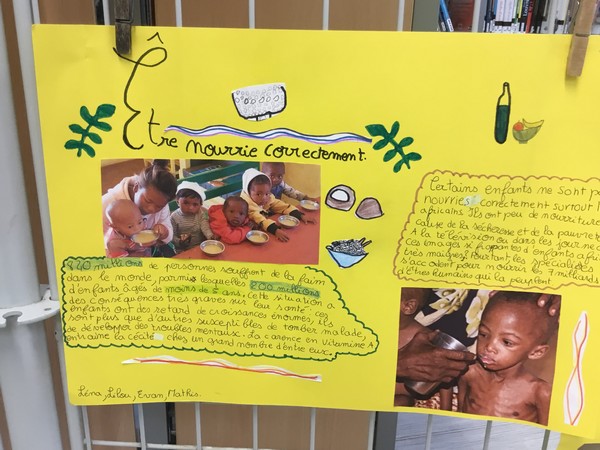 Être nourrie correctement.
Certains enfants ne sont p
nourries conectement surtout l
africains. Ils ont peu de nourriture
cause de la sécheresse et de la pauvreté
A la télévision ou dans les journea
ces images si frappantes d'enfants afri
très maigres. Pourtant les spécialis
s'accordent pour nourrir les 7 milliards
d'êtres humains qui la peuplent
840 millions de personnes souffrent de la faim
dans le monde, parmis lesquelles 200 millions
d'enfants âgés de moins de 5 ans. cette situation a
des conséquences très graves sur leur santé: ces
enfants ont des retard de croissances énormes, ils
sont plus que d'autres susceptibles de tomber malade,
de développer des troubles mentaux. La carence en vitamine A
entraîne la cécité chez un grand nombre d'entre eux.
Léna, Lilou, Evan, Mathis.